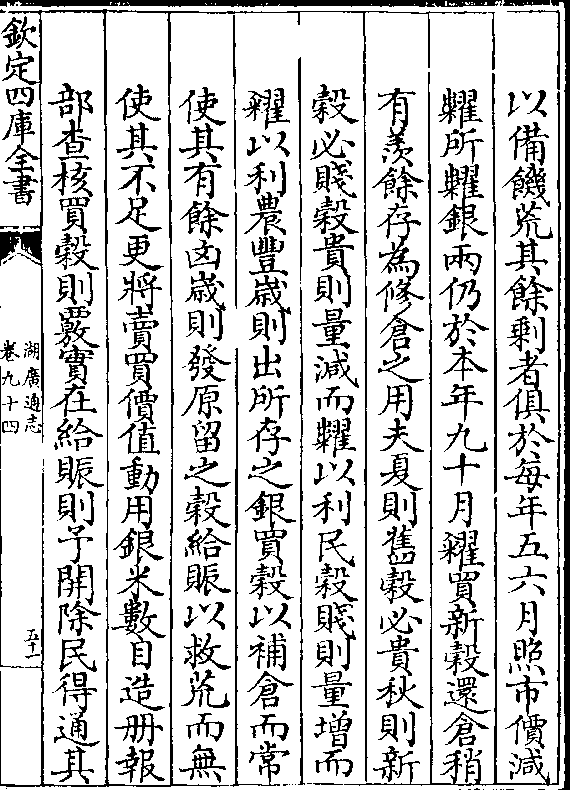 以備饑荒其餘剩者俱於每年五六月照市價減
糶所糶銀兩仍於本年九十月糴買新穀還倉稍
有羡餘存為修倉之用夫夏則舊穀必貴秋則新
穀必賤穀貴則量減而糶以利民穀賤則量增而
糴以利農豐歲則出所存之銀買穀以補倉而常
使其有餘凶歲則發原留之穀給賑以救荒而無
使其不足更將賣買價值動用銀米數目造册報
部查核買穀則覈實在給賑則予開除民得通其
欽定四庫全書
湖廣通志
卷九十四
五十一